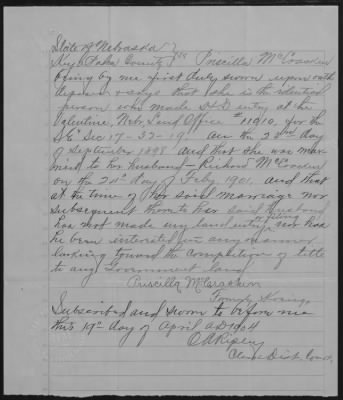 State of Nebraska }
Keya Paha County } SS Priscilla McCracken
being by me first duly sworn upon oath
deposes & says that she is the identical
person who made Hd entry at the
Valentine, Neb. Land Office # 11910. for the
SE¼ Sec 17-32-19 on the day
of September 1898 and that she was mar-
ried to her husband - Richard McCracken
on the 24th day of Feby. 1901. and that
at the time of her said marriage nor
subsequent thereto her said husband
has not made any land entry or filing nor has
he been interested in any manner
looking toward the completion of title
to any Government land
Priscilla McCracken
Formerly
Subscribed and sworn to before me
this 19th day of April A.D. 1904
C A Ripley
Clerk Dist. Court.